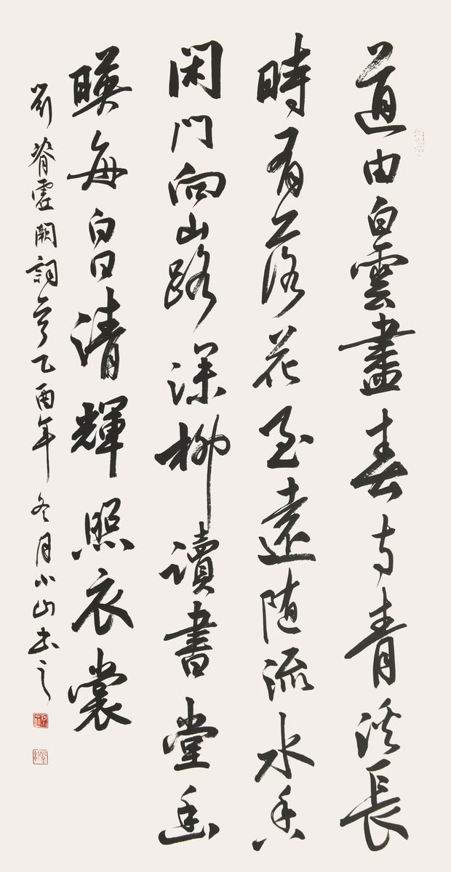 道由白雲盡春与青溪長
時有落花至遠随流水香
閑門向山路深柳讀書堂幽
暎每白日清輝照衣裳
劉脊虛闕詞乙酉年冬月小山书之